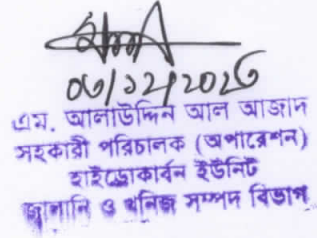 ০৩/১২/২০২৫
এম. আলাউদ্দিন আল আজাদ
সহকারী পরিচালক (অপারেশন)
হাইড্রোকার্বন ইউনিট
জ্বালানি ও খনিজ সম্পদ বিভাগ